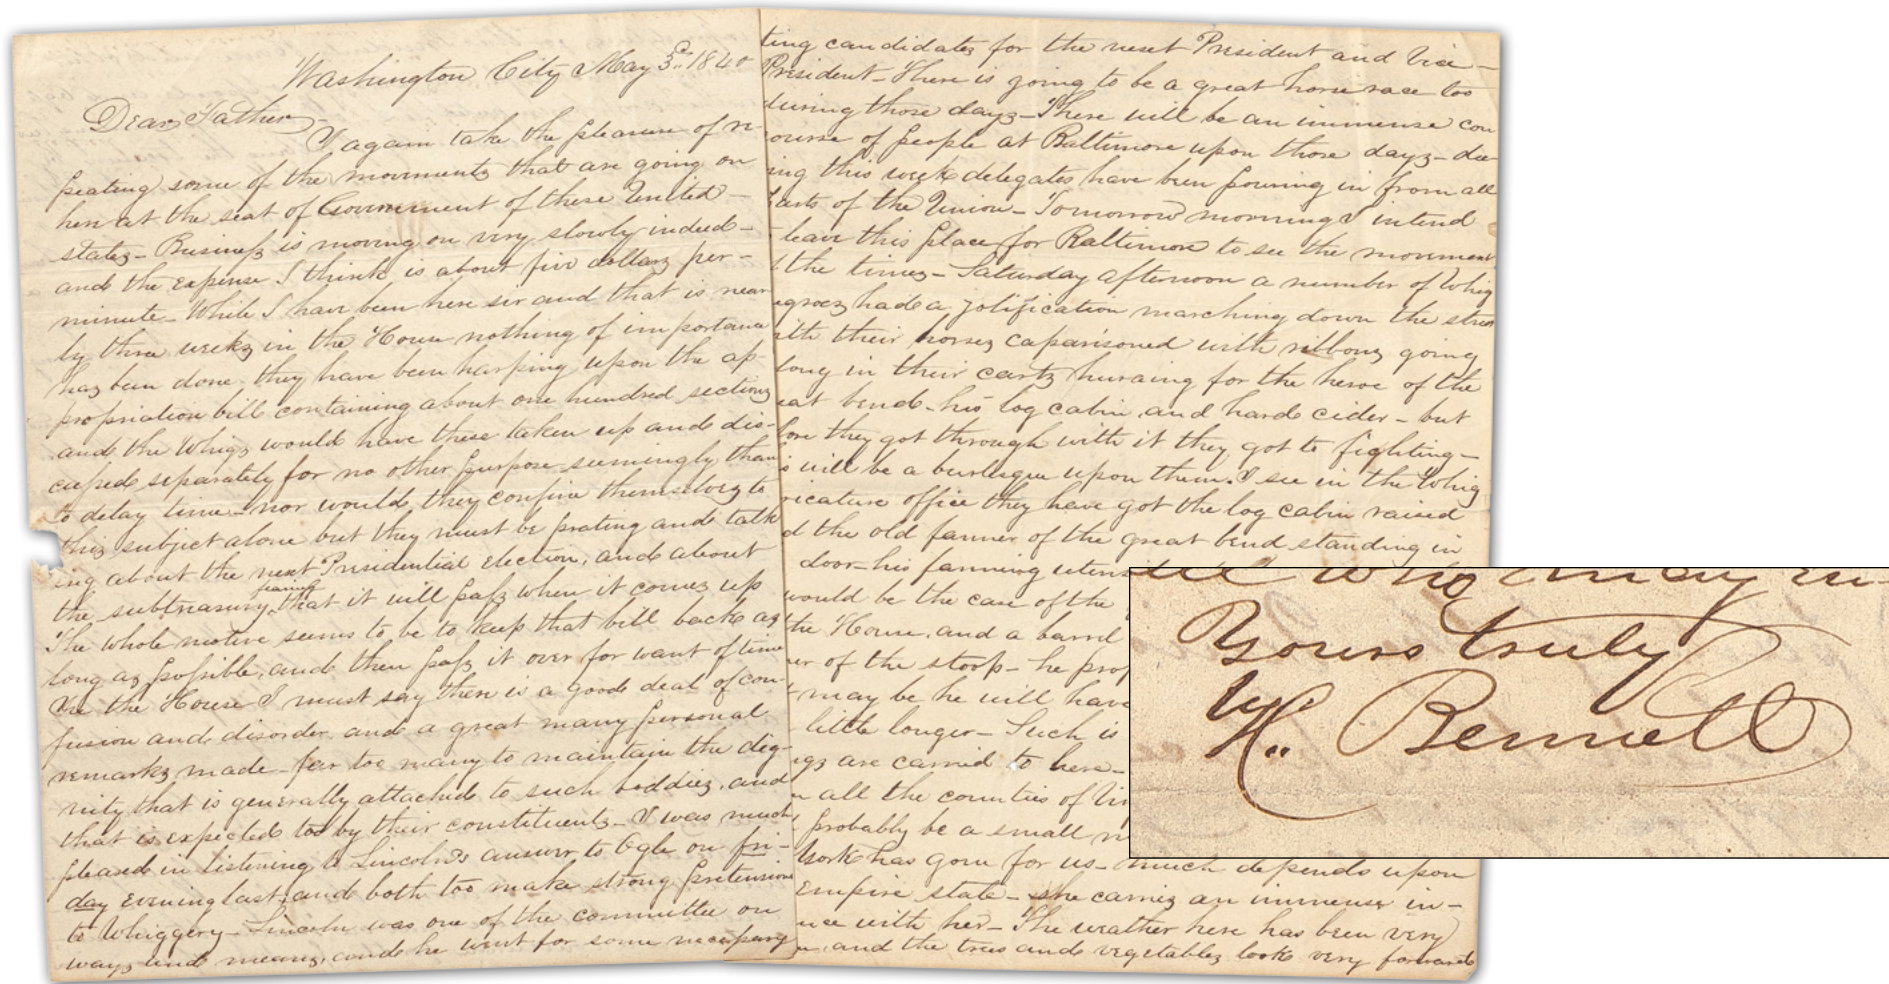 Washington City May 3d. 1840
Dear Father,
I again take the pleasure of re-
peating some of the movements that are going on
here at the seat of Government of these United-
states- Business is moving on very slowly indeed-
and the expense I think is about five dollars per-
minute- While I have been here sir and that is near
ly three weeks in the House nothing of importance
has been done. they have been harping upon the ap-
propriation bill containing about one hundred sections
and the Whigs would have these taken up and dis-
cussed separately for no other purpose seemingly than
to delay time- nor would they confine themselves to
this subject alone but they must be prating and talk
ing about the next Presidential election, and about
the subtreasury, fearing that it will pass when it comes up
The whole motive seems to be to keep that bill back as
long as possible, and then pass it over for want of time
In the House I must say there is a good deal of con-
fusion and disorder and a great many personal
remarks made- far too many to maintain the dig-
nity that is generally attached to such boddies, and
that is expected too by their constituents- I was much
pleased in listening to Lincoln's answer to Ogle on fri-
day evening last, and both too make strong pretensions
to Whiggery- Lincoln was one of the committee on
ways and means, and he went for some necessary
ting candidates for the next President and Vice-
President- There is going to be a great horse race too
during those days- There will be an immense con
course of people at Baltimore upon those days- du-
ing this week delegates have been pouring in from all
parts of the Union- Tomorrow morning I intend
leave this place for Baltimore to see the movement
the times- Saturday afternoon a number of Whig
egroes had a jolification marching down the street
ith their horses caparisoned with ribbons going
long in their carts huraing for the heroe of the
eat bend- his log cabin, and hard cider- but
fore they got through with it they got to fighting-
s will be a burlesque upon them. I see in the Whig
ricature office they have got the log cabin raised
d the old farmer of the great bend standing in
door- his farming uten
would be the case of the
the House, and a barrel
er of the stoop- he prof
may be he will have
little longer- Such is
igs are carried to here-
all the counties of Vir
probably be a small
York has gone for us- much depends upon
Empire state- she carries an immense in-
nce with her- The weather here has been very
and the trees and vegetables look very forward
Yours truly
Wm. H. Bennett